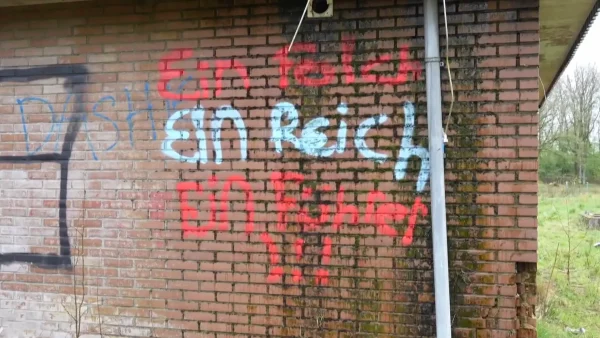 DASH
Ein
Ein Reich
Ein Führer
!!!